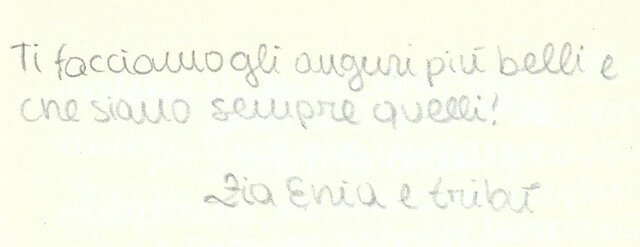 Ti facciamo gli auguri più belli e
che siano sempre quelli!
Zia Enia e tribù